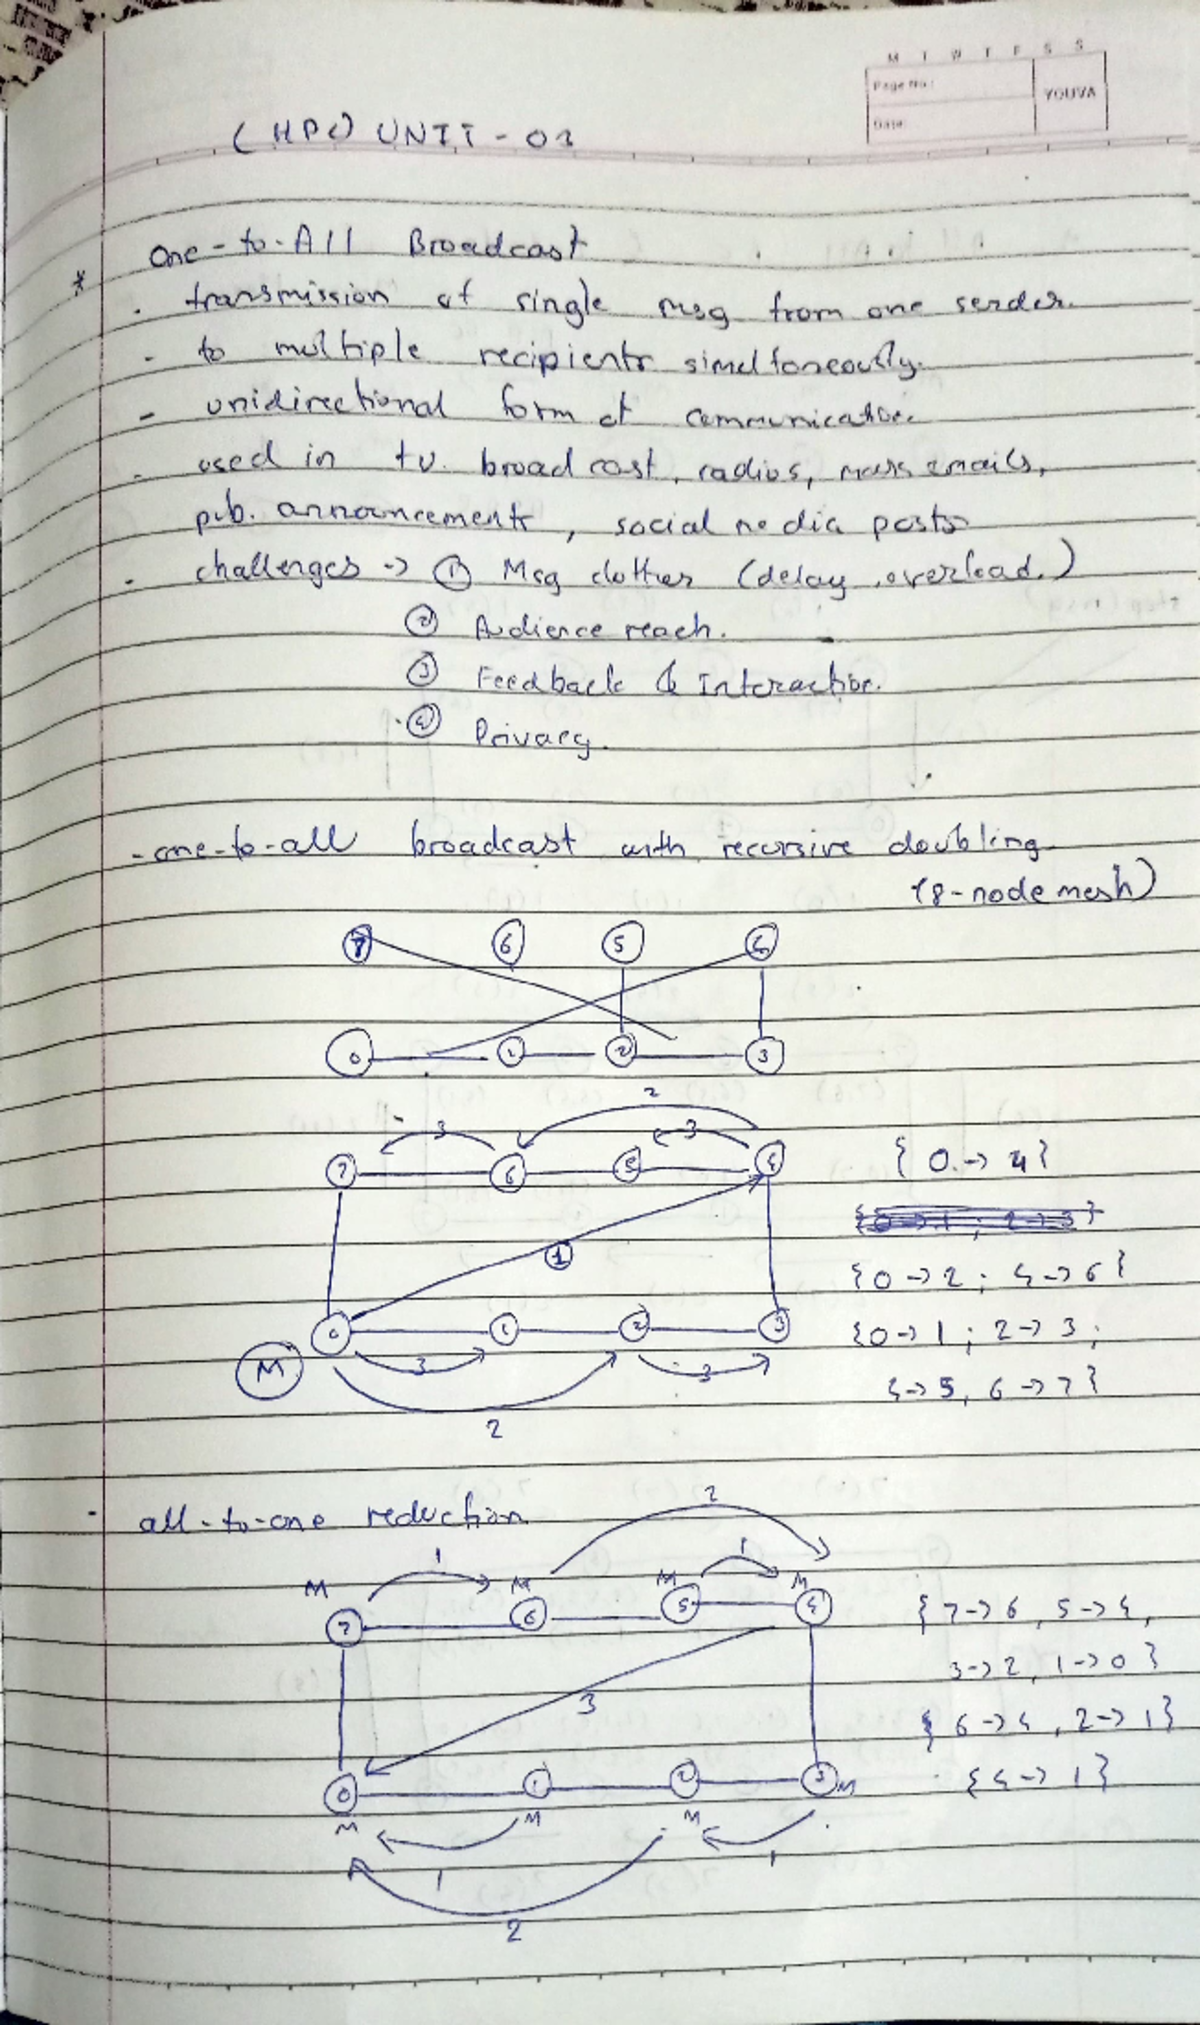 M T W T F S S
Page No.:
YOUVA
Date:
(HPC) UNIT - 03
* One-to-All Broadcast
. transmission of single msg from one sender.
- to multiple recipients simeltoneously.
- unidirectional form of communication.
. used in tv. broadcast, radios, mass emails,
pub. announcements, social media posts
. challenges -> ① Msg clutter (delay, overload.)
② Audience reach.
③ Feedback & Interaction.
④ Privacy.
- one-to-all broadcast with recursive doubling
(8-node mesh)
7 6 5
0 1 2 3
2
3 3
7 6 5 4
{ 0 -> 4 }
{0->1 ; 2->3}
1
{0 -> 2 ; 4->6}
0 1 2 3
{0-> 1 ; 2-> 3 ;
M
3 3
4->5, 6->7}
2
. all-to-one reduction
2
1 1
M M M M
7 6 5 4
{ 7->6, 5->4,
3->2, 1->0 }
3
{ 6->4, 2->1}
0 1 2 3
{4-> 1}
M M M M
1 1
2